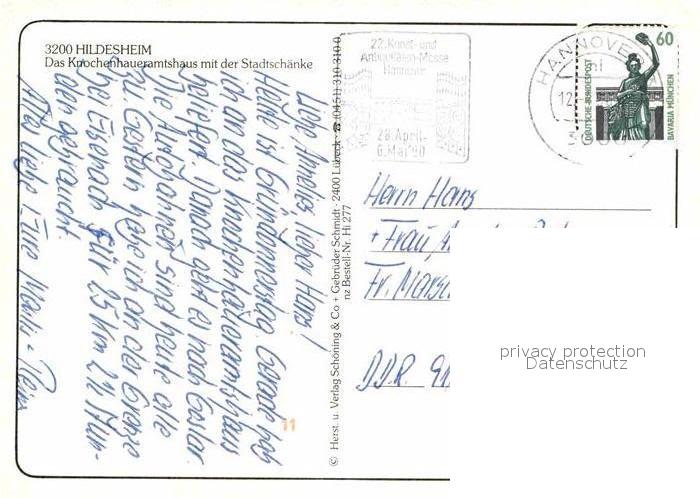 3200 HILDESHEIM
Das Knochenhaueramtshaus mit der Stadtschänke
Liebe Annelies, lieber Hans!
Heute ist Gründonnerstag. Gerade hab
ich das Knochenhaueramtshaus
Danach geht es nach Goslar.
Die Autobahnen sind heute alle
zu. Gestern habe ich an der Grenze
bei Eisenach für 25 km 2 1/2 Stun-
den gebraucht.
Alles Liebe Eure
11
© Herst. u. Verlag Schöning & Co + Gebrüder Schmidt · 2400 Lübeck · ☎ 0451/3 10 31 0-0
nz Bestell-Nr. Hi 277
22. Kunst- und
Antiquitäten-Messe
Hannover
28. April-
6. Mai '90
HANNOVER
12
60
DEUTSCHE BUNDESPOST
BAVARIA MÜNCHEN
Herrn Hans
+ Frau
Fr.
DDR
privacy protection
Datenschutz